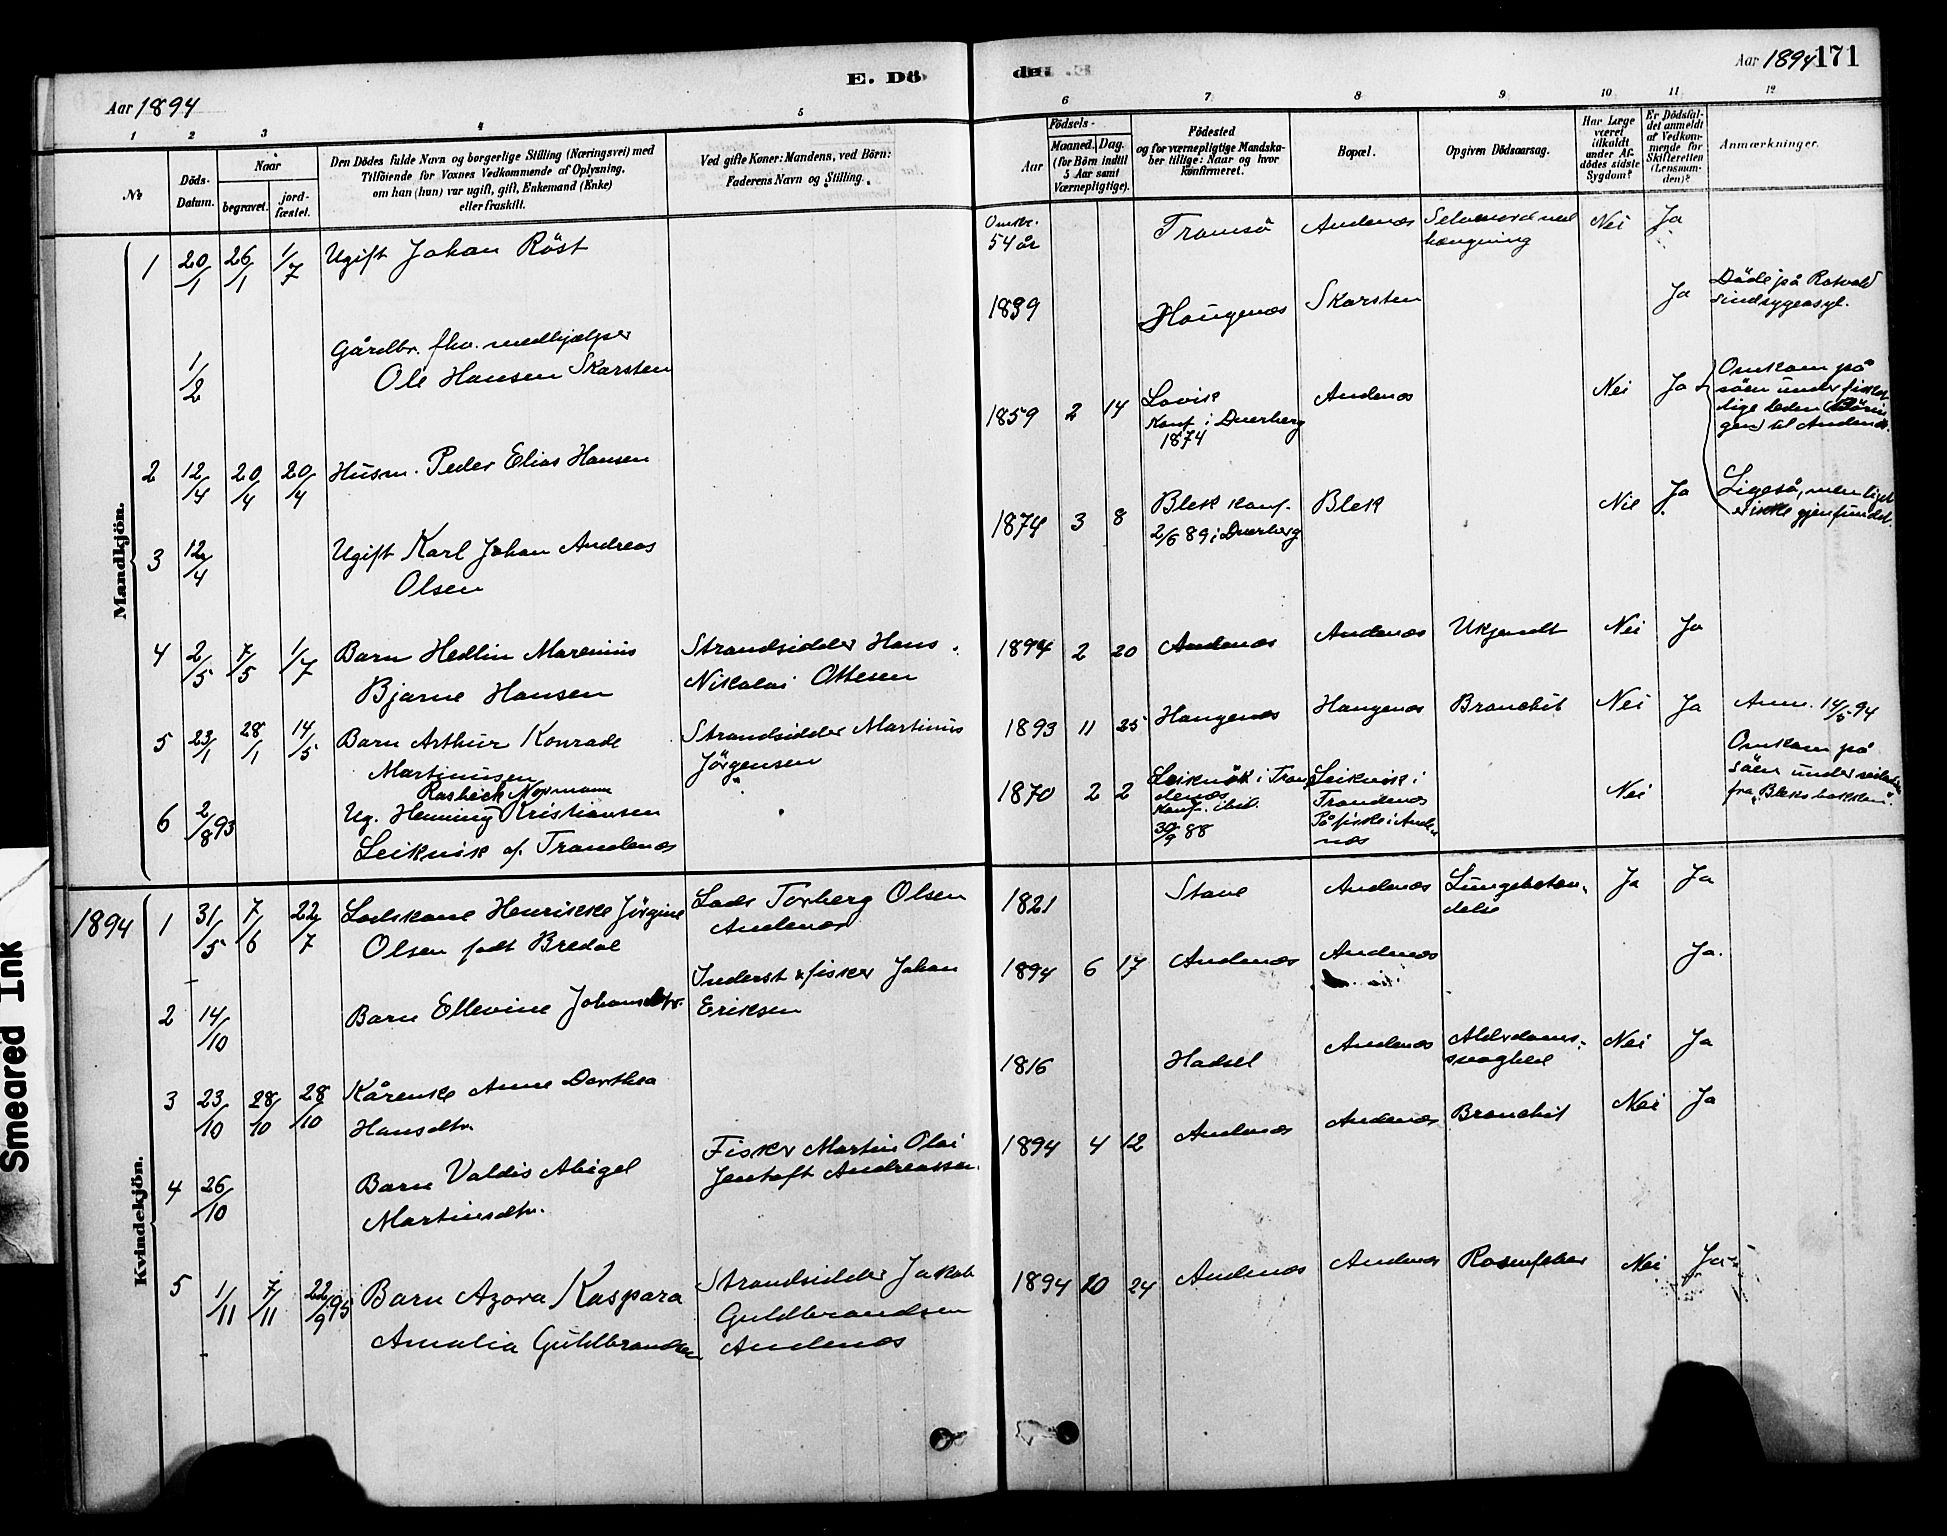 E. Döde. E.
Aar 1894
Aar 1894 171
1 2 3 4 5 6 7 8 9 10 11 12
No.
Döds-Datum.
Naar
begravet.
jord-fæstet.
Den Dödes fulde Navn og borgerlige Stilling (Næringsvei) med
Tilföiende for Voxnes Vedkommende af Oplysning,
om han (hun) var ugift, gift, Enkemand (Enke)
eller fraskilt.
Ved gifte Koner: Mandens, ved Börn:
Faderens Navn og Stilling.
Födsels-
Aar
Maaned. Dag.
(for Börn indtil
5 Aar samt
Værnepligtige).
Födested
og for værnepligtige Mandska-
ber tillige: Naar og hvor
konfirmeret.
Bopæl.
Opgiven Dödsaarsag.
Har Læge
været
tilkaldt
under Af-
dödes sidste
Sygdom?
Er Dödsfal-
det anmeldt
af Vedkom-
mende for
Skifteretten
(Lensman-
den)?
Anmærkninger.
Mandkjön.
1 20/1 26/1 1/7 Ugift Johan Röst Omkr. 54 år Tromsö Andenæs Selvmord ved hængning Nei Ja
1/2 Gårdbr. fhv. medhjælper
Ole Hansen Skarsten 1839 Haugenæs Skarsten Ja Döde på Rotvold sindsygeasyl.
2 12/4 20/4 20/4 Husm. Peder Elias Hansen 1859 2 14 Lovik
Konf. i Dverberg
1874 Andenæs Nei Ja Omkom på
söen under
til Andenæs.
3 12/4 Ugift Karl Johan Andreas
Olsen 1874 3 8 Blek konf.
2/6 89 i Dverberg Blek Nei Ja Ligeså, men liget
er ikke gjenfundet.
4 2/5 7/5 1/7 Barn Hedlin Marenius
Bjarne Hansen Strandsidder Hans
Nikolai Ottesen 1894 2 20 Andenæs Andenæs Ukjendt Nei Ja
5 23/1 28/1 14/5 Barn Arthur Konrade
Martinusen Strandsidder Martinus
Jörgensen 1893 11 25 Haugenæs Haugenæs Bronchit Nei Ja Anm. 14/5 94
6 2/8 93 Rasbeck Normann
Ug. Henning Kristiansen
Leikvik af Trandenæs 1870 2 2 Leikvik i Tran-
denæs
Konf. ibid.
30/9 88 Leikvik i
Trandenæs
På fiske i Ande-
næs Nei Omkom på
söen under
fra "Bleksbakken".
Kvindekjön.
1894 1 31/5 7/6 22/7 Lodskone Henrikke Jörgine
Olsen födt Bredal Lods Torberg Olsen
Andenæs 1821 Stave Andenæs Lungebeten-
delse Ja Ja
2 14/10 Barn Ellevine Johansdtr. Inderst & fisker Johan
Eriksen 1894 6 17 Andenæs Andenæs Ja.
3 23/10 28/10 28/10 Kårenke Anne Dorthea
Hansdtr. 1816 Hadsel Andenæs Alderdoms-
svaghed Nei Ja
4 26/10 Barn Valdis Abigel
Martinsdtr. Fisker Martin Olai
Jentoft Andreassen 1894 4 12 Andenæs Andenæs Bronchit Nei Ja
5 1/11 7/11 22/9 95 Barn Azora Kaspara
Amalia Guldbrandsen Strandsidder Jakob
Guldbrandsen
Andenæs 1894 10 24 Andenæs Andenæs Rosenfeber Nei Ja
Smeared Ink